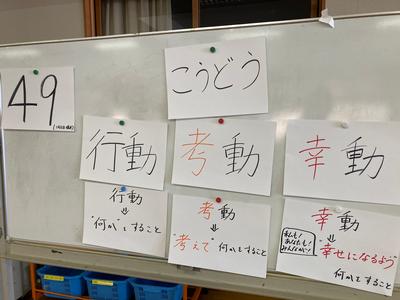 49
こうどう
行動
考動
幸動
行動
⇓
"何か"とすること
考動
⇓
"考えて"何かとすること
幸動
⇓
私も!
あなたも!
みんなが!
幸せになるよう
何かとすること